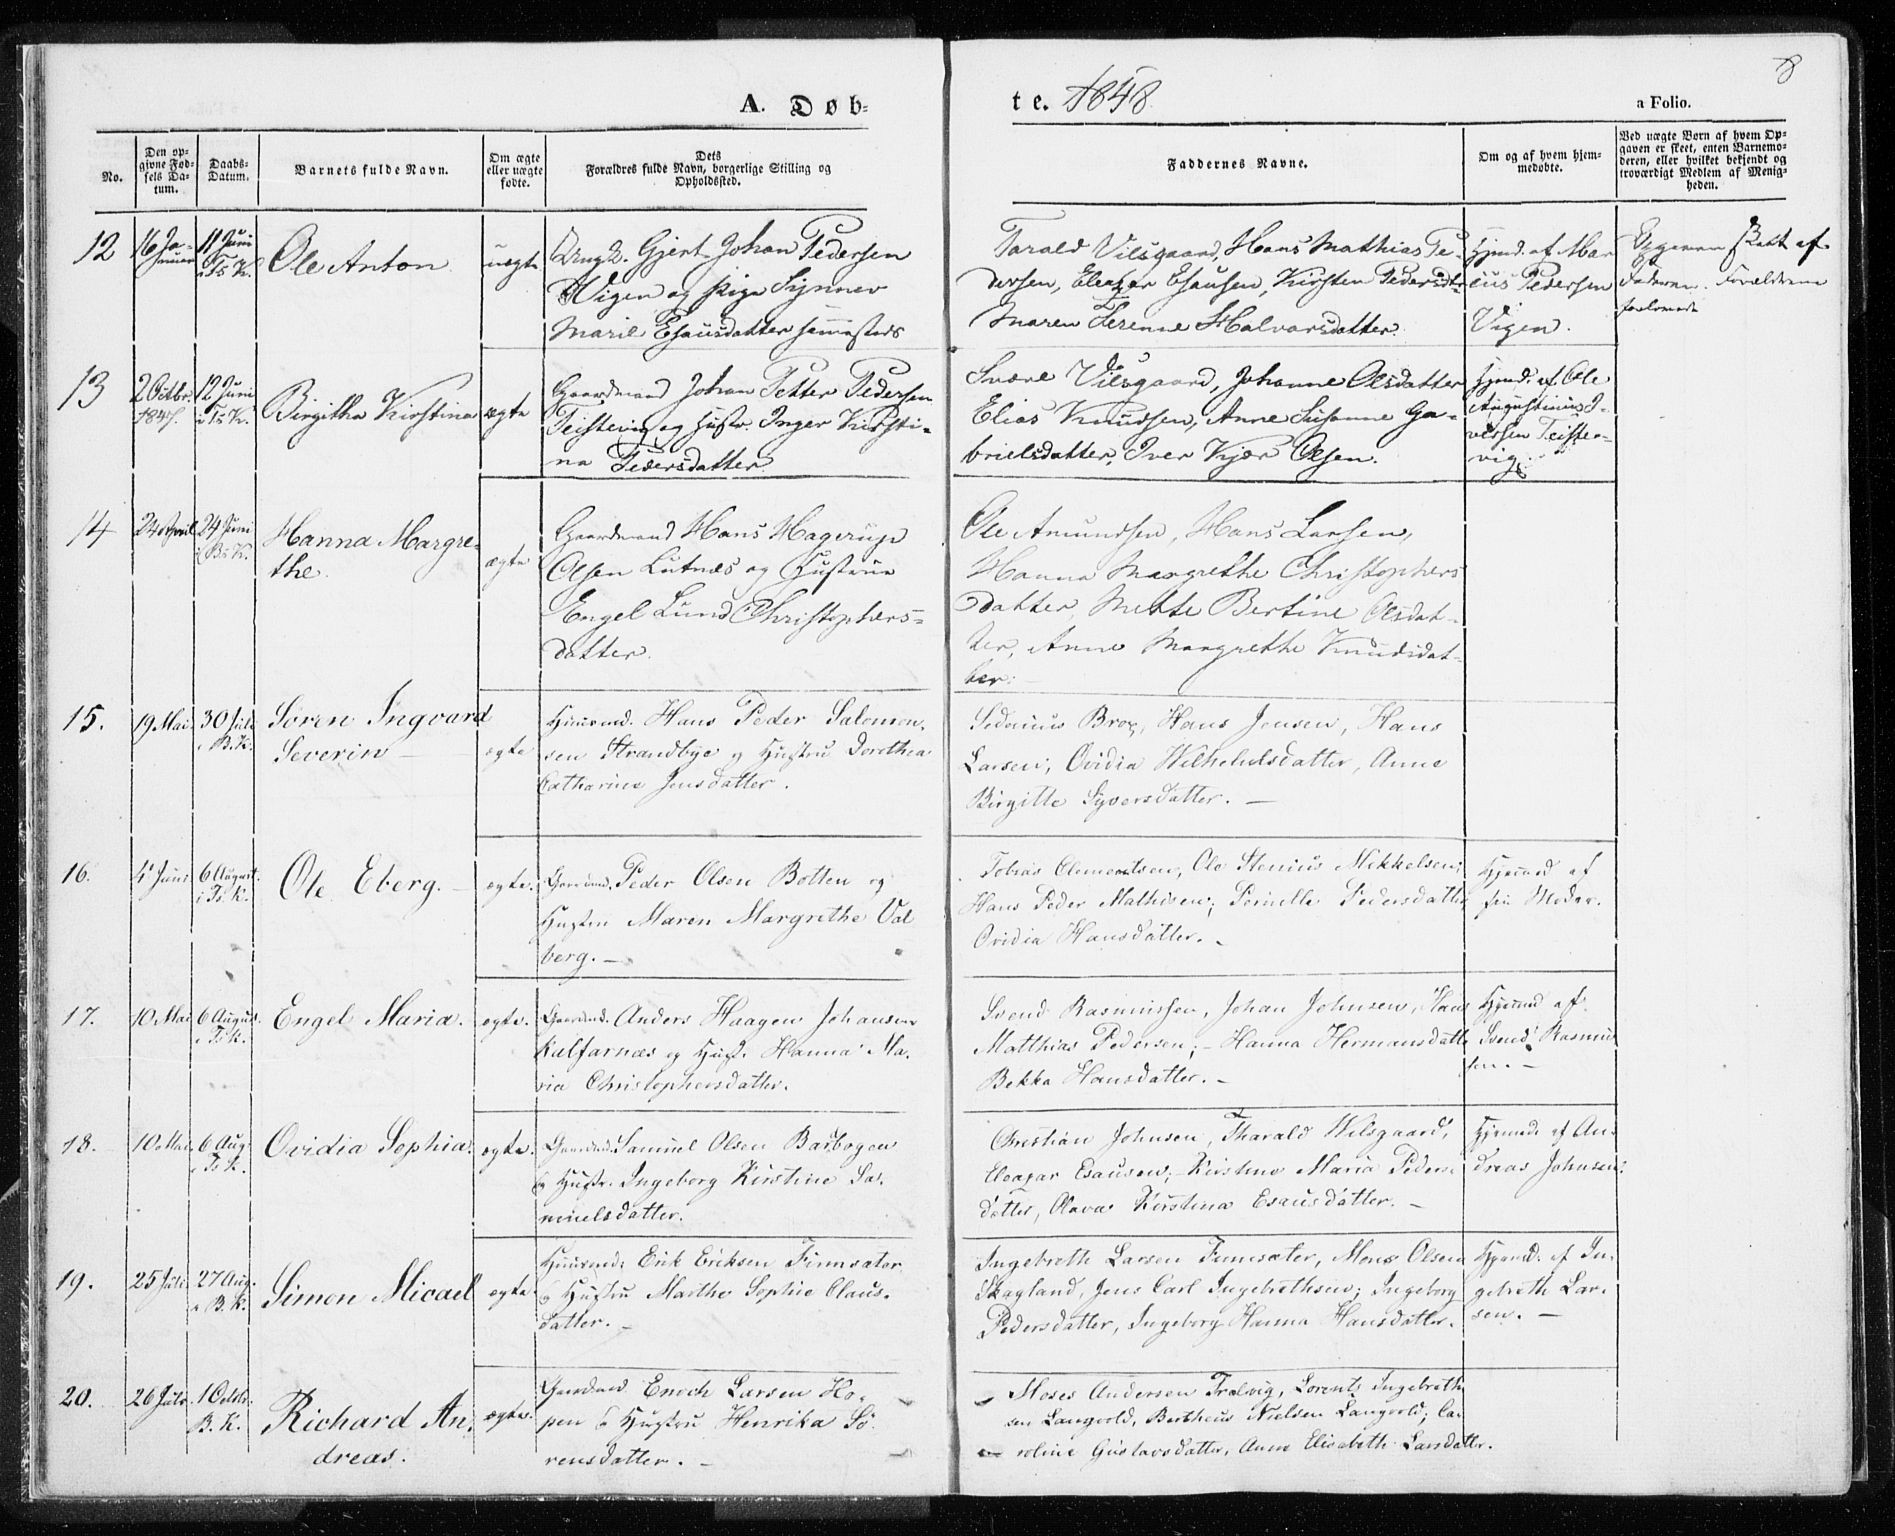 8
A. Døb-
te. 1848.
a Folio.
No.
Den op-
givne Fød-
sels Da-
tum.
Daabs-
Datum.
Barnets fulde Navn.
Om ægte
eller uægte
fødte.
Dets
Forældres fulde Navn, borgerlige Stilling og
Opholdssted.
Faddernes Navne.
Om og af hvem hjem-
medøbte.
Ved uægte Børn af hvem Op-
gaven er skeet, enten Barnemo-
deren, eller hvilket bekjendt og
troværdigt Medlem af Menig-
heden.
12
16 Ja-
nuar
11 Juni
i Ts. K.
Ole Anton
uægte
Ungk. Gjert Johan Pedersen
Wigen og Pige Synnev
Marie Esausdatter sammesteds
Tarald Vilsgaard, Hans Mathias Pe-
dersen, Eleazar Esausen, Kirsten Pedersdtr
Maren Serenne Halvorsdatter.
Hjmd. af Mar
cus Pedersen
Vigen.
Opgaven skeet af
Faderen. Forældrene
forlovede
13
2 Octbr.
1847.
12 Juni
i Ts. K.
Birgitha Kirstina
ægte
Gaardmand Johan Petter Pedersen
Teistevig og Hustr. Inger Kirsti-
na Pedersdatter
Svend Vilsgaard, Johanne Olsdatter
Elias Knudsen, Anne Susanne Ga-
brielsdatter, Iver Kjær Olsen.
Hjmd. af Ole
Augustinus I-
versen Teiste-
vig.
14
24 April
24 Juni
i Bs. K.
Hanna Margre-
the.
ægte
Gaardmand Hans Hagerup
Olsen Lutnæs og Hustrue
Engel Lund Christophers-
datter.
Ole Amundsen, Hans Larsen,
Hanna Margrethe Christophers
datter, Mette Bertine Olsdat-
ter, Anne Margrethe Knudsdat-
ter.
15.
19 Mai
30 Juli
i B. K.
Søren Ingvard
Severin —
ægte
Huusmd. Hans Peder Salomon-
sen Strandbye og Hustru Dorothea
Catharina Jensdatter.
Sedenius Brox, Hans Jensen, Hans
Larsen, Ovidia Wilhelmsdatter, Anne
Birgitte Syversdatter. —
16.
4 Juni
6 August.
i Ts. K.
Ole Eberg. —
ægte.
Gaardmd. Peder Olsen Botten og
Hustru Maren Margrethe Val
berg. —
Tobias Clementsen, Ole Stenius Mikkelsen;
Hans Peder Mathisen; Pernille Pedersdatter
Ovidia Hansdatter. -
Hjemmd af
sin Moder.
17.
10 Mai
6 August.
i Ts. K.
Engel Maria.
ægte.
Gaardmd. Anders Haagen Johansen
Kalfarnæs og Hust. Hanna Ma-
ria Christophersdatter.
Svend Rasmussen, Johan Johnsen, Hans
Matthias Pedersen; - Hanna Hermansdatt
Bekka Hansdatter. -
Hjemmd af
Svend Rasmus
sen. -
18.
10 Mai
6 Aug.
i Ts. K.
Ovidia Sophia.
ægte.
Gaardmd. Samuel Olsen Barbogen
og Hustr. Ingeborg Kirstine Sa-
muelsdatter.
Christian Johnsen, Tharald Wilsgaard,
Eleazar Esausen; - Kirstine Maria Peders
datter, Olava Kirstina Esausdatter. -
Hjemmd. af An-
dreas Johnsen.
19.
25 Juli
27 Aug.
i B. K.
Simon Micael
ægte.
Huusmd. Erik Eriksen Finnsæter
og Hustru Marthe Sophie Claus-
datter. -
Ingebreth Larsen Finnsæter, Mons Olsen
Skagland, Jens Carl Ingebrethsen; Ingeborg
Pedersdatter, Ingeborg Hanna Hansdatter.
Hjemmd. af In-
gebreth Lar-
sen. —
20.
26 Juli.
1 Octbr.
B. K.
Richard An-
dreas.
ægte.
Gaardmd Enoch Larsen Ho-
pen og Hustru Henrika Sø-
rensdatter. -
Moses Andersen Trælvig, Lorents Ingebreth
sen Langvold, Bertheus Nielsen Langvold; Ca-
roline Gustavsdatter, Anne Elisabeth Larsdatter.